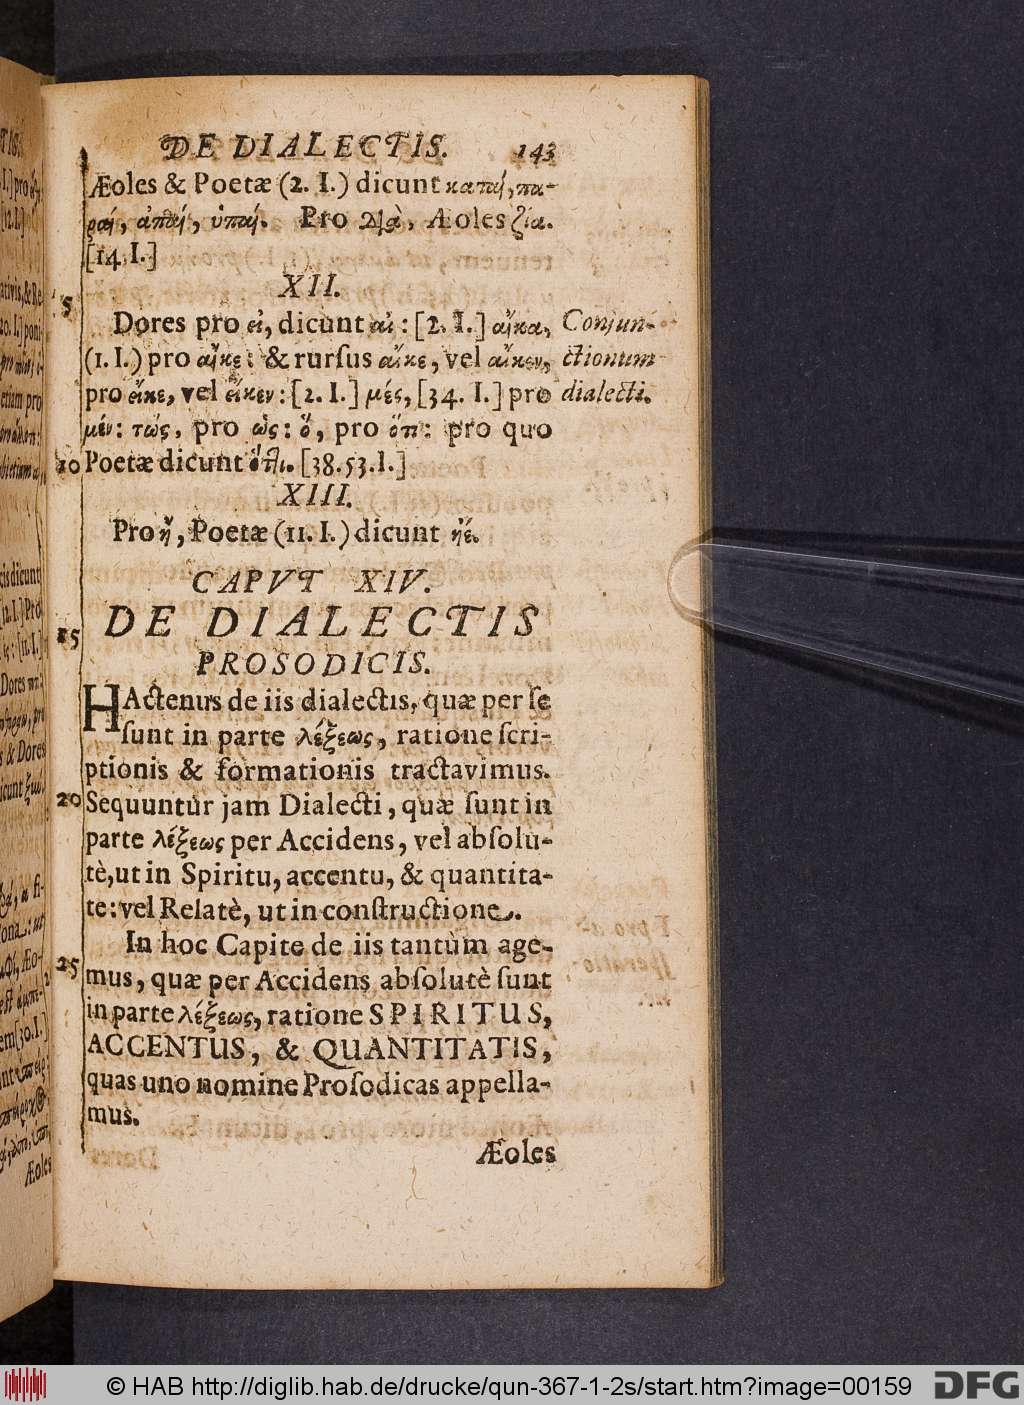 DE DIALECTIS. 143
Æoles & Poetæ (2. I.) dicunt καταί, πα-
ραί, ἀπαί, ὑπαί. Pro διὰ, Æoles ζία.
[14. I.]
XII.
5
Dores pro εἰ, dicunt αἰ: [2. I.] αἴκα,
(1. I.) pro αἴκε: & rurſus αἴκε, vel αἴκεν,
pro εἴκε, vel εἴκεν: [2. I.] μές, [34. I.] pro
μέν: τώς, pro ὡς: ὅ, pro ὅτι: pro quo
10 Poetæ dicunt ὅττι. [38.53.I.]
Conjun-
ctionum
dialecti.
XIII.
Pro ἤ, Poetæ (11. I.) dicunt ἠέ.
CAPVT XIV.
15 DE DIALECTIS
PROSODICIS.
HActenus de iis dialectis, quæ per ſe
ſunt in parte λέξεως, ratione ſcri-
ptionis & formationis tractavimus.
20 Sequuntur jam Dialecti, quæ ſunt in
parte λέξεως per Accidens, vel abſolu-
tè, ut in Spiritu, accentu, & quantita-
te: vel Relatè, ut in conſtructione.
In hoc Capite de iis tantùm age-
25 mus, quæ per Accidens abſolutè ſunt
in parte λέξεως, ratione SPIRITUS,
ACCENTUS, & QUANTITATIS,
quas uno nomine Proſodicas appella-
mus.
Æoles
© HAB http://diglib.hab.de/drucke/qun-367-1-2s/start.htm?image=00159 DFG